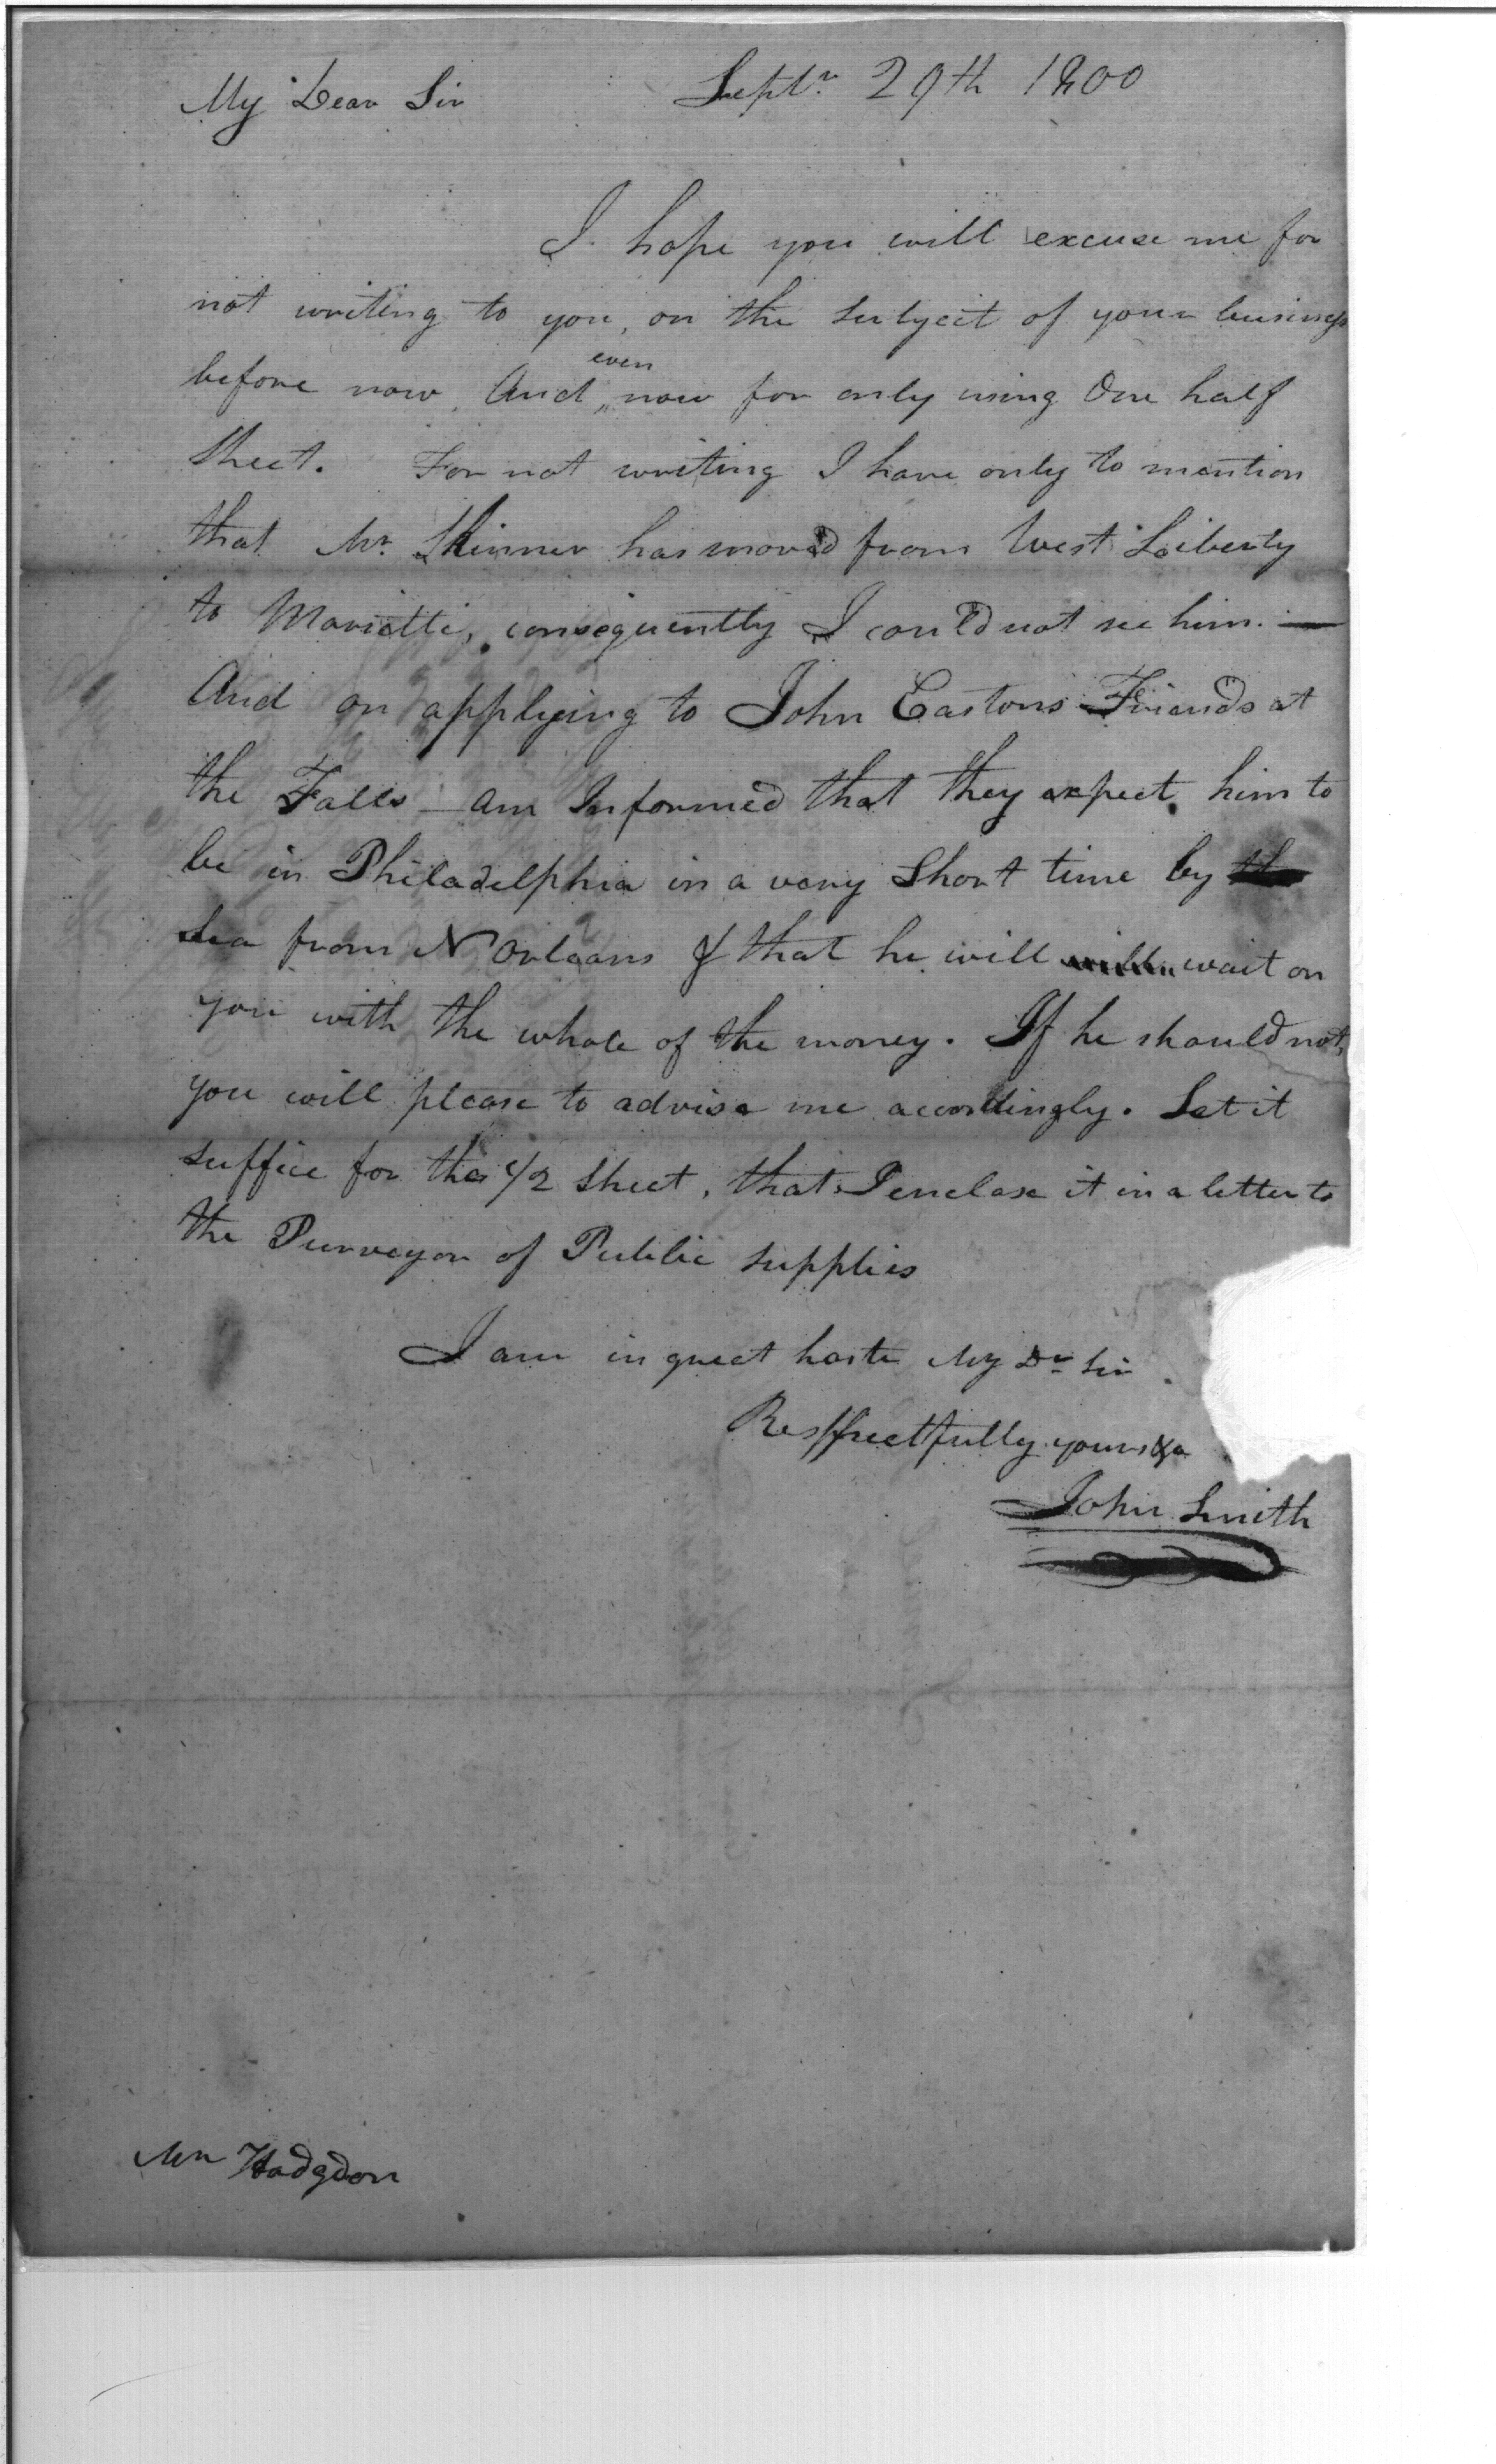 My Dear Sir Septr. 29th 1800
I hope you will excuse me for
not writing to you, on the subject of your business
before now And even now for only using One half
sheet. For not writing I have only to mention
that Mr. Skinner has moved from West Liberty
to Marietti, consequently I could not see him. —
And on applying to John Eastons Friends at
the Falls am Informed that they expect him to
be in Philadelphia in a very Short time by the
Sea from N Orleans & that he will will wait on
you with the whole of the money. If he should not,
you will please to advise me accordingly. Let it
suffice for the 1/2 Sheet, that I enclose it in a letter to
the Purveyor of Public supplies
I am in great haste My Dr Sir
Respectfully yours &a
John Smith
Mr Hodgdon